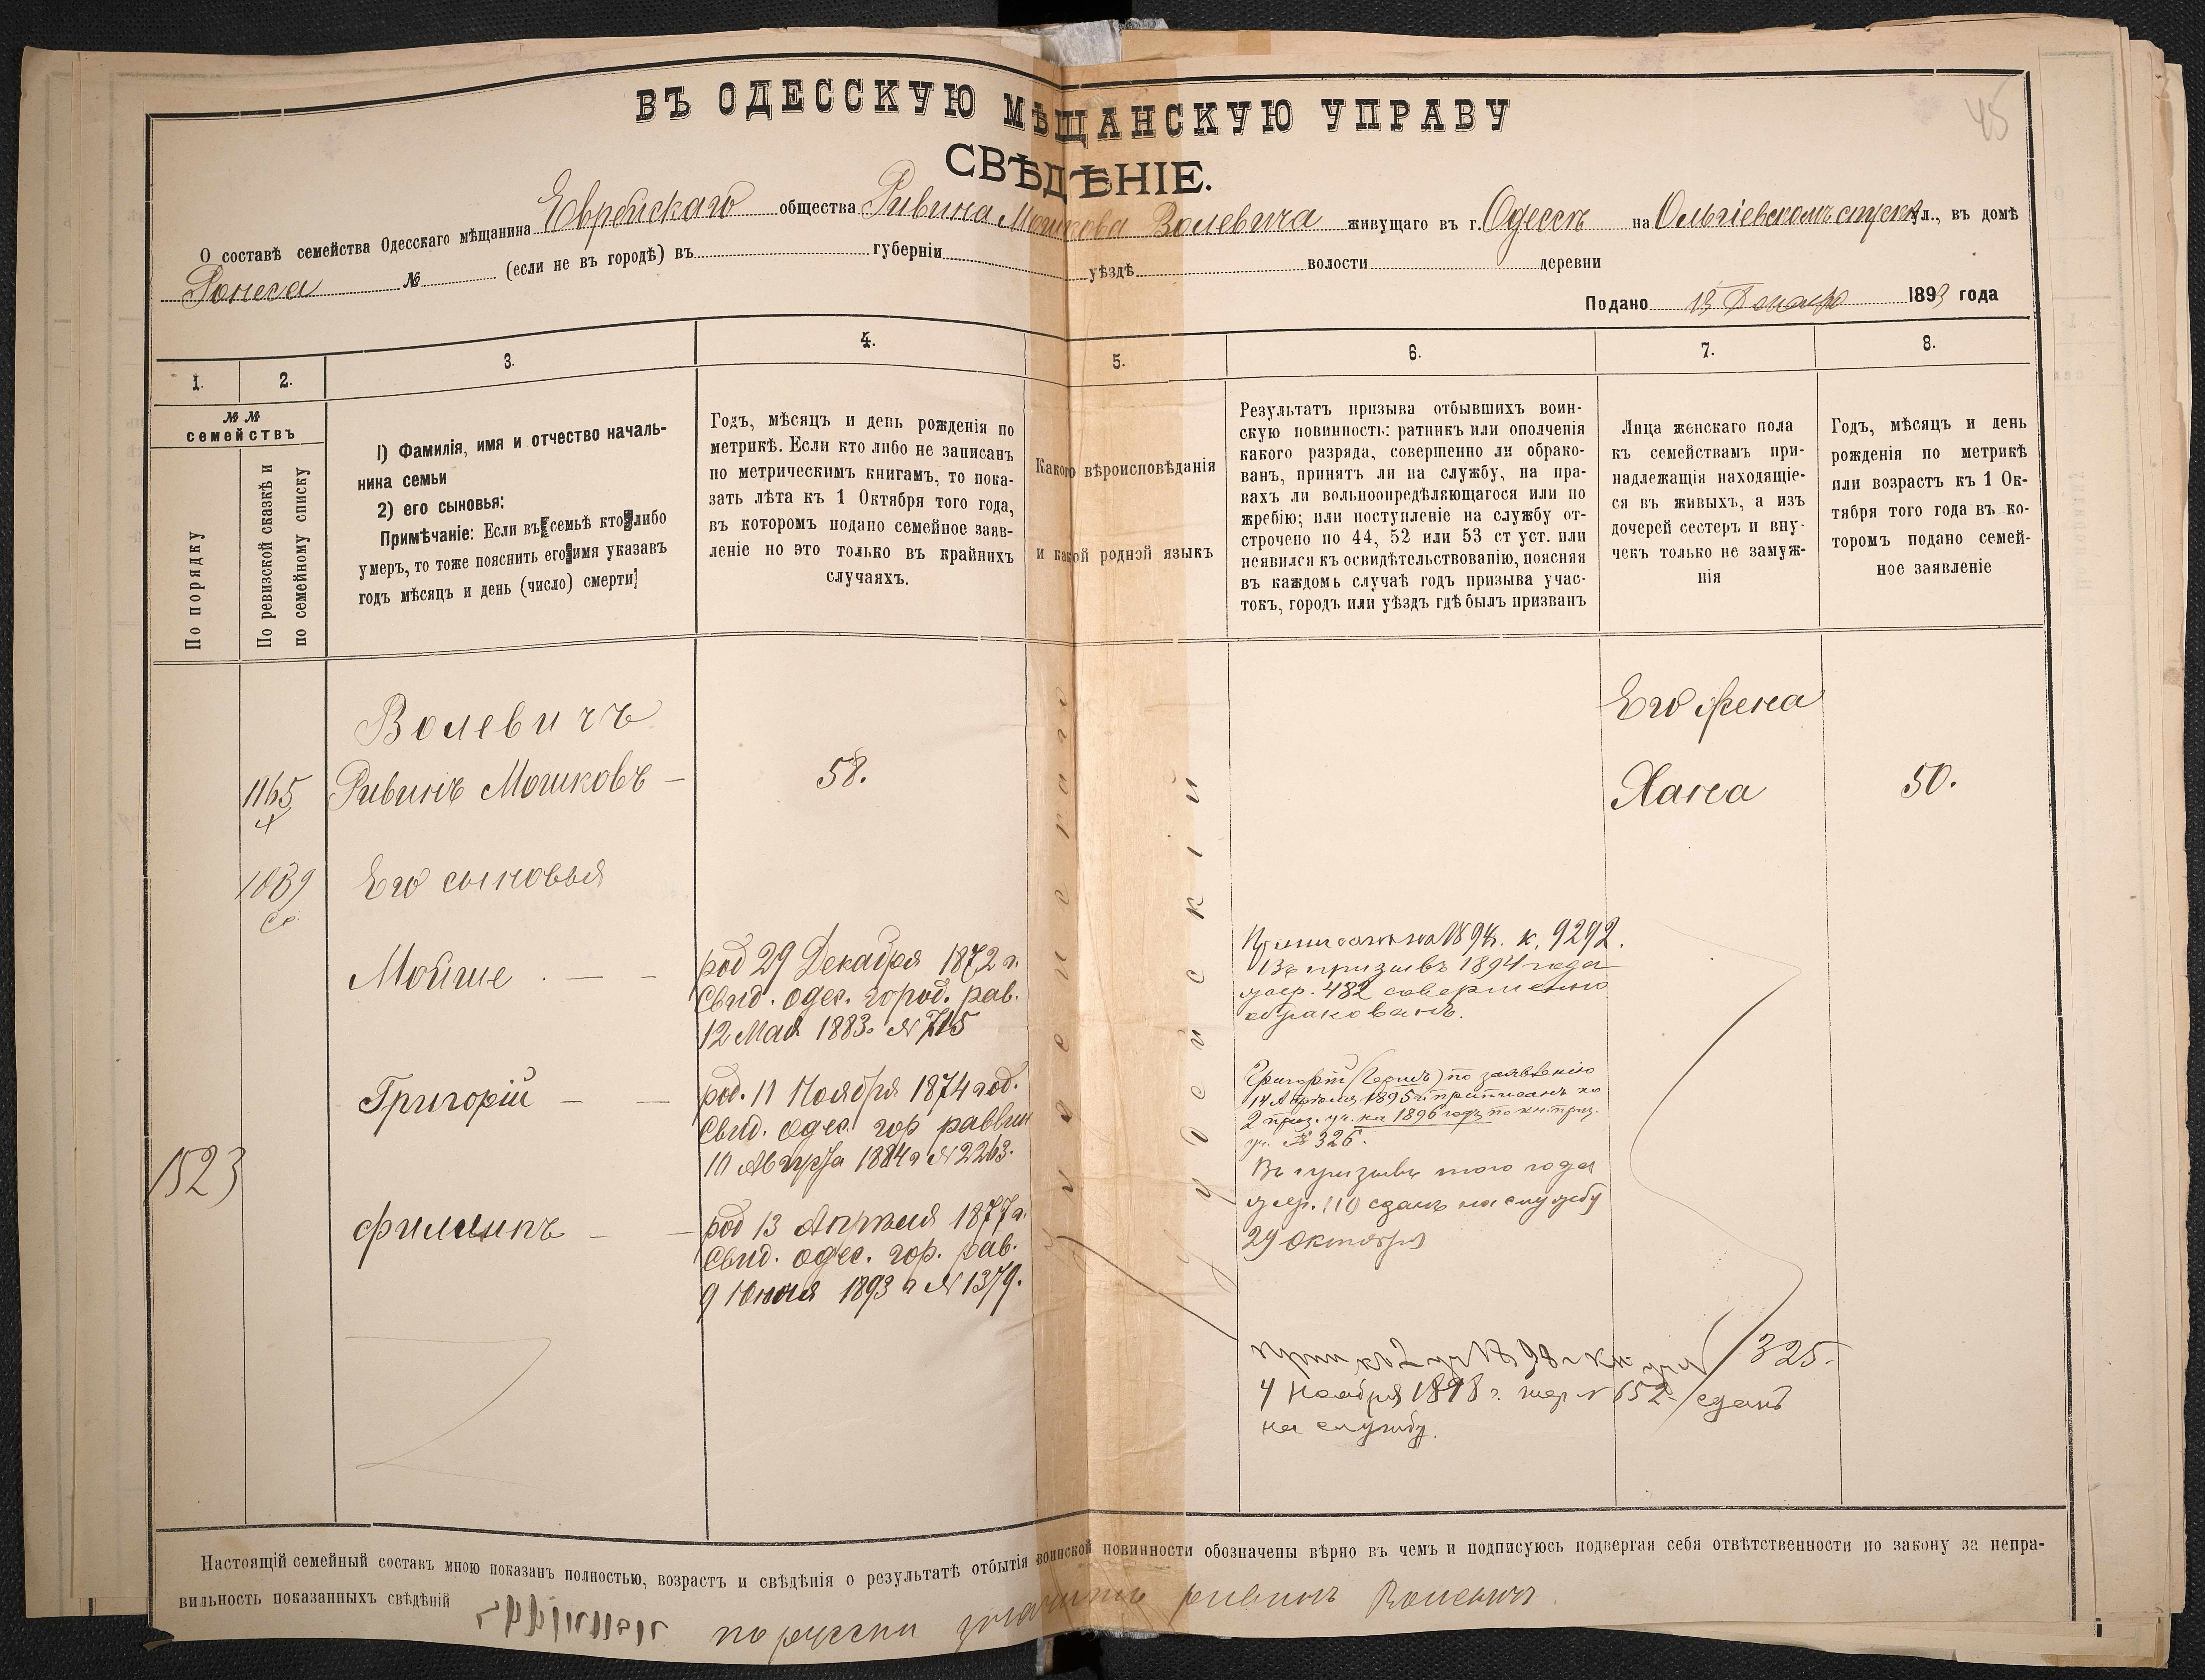 45
ВЪ ОДЕССКУЮ МѢЩАНСКУЮ УПРАВУ
СВѢДѢНІЕ.
О составѣ семейства Одесскаго мѣщанина Еврейскаго общества Ривина Мошкова Волевича живущаго въ г. Одессѣ на Ольгіевскомъ спускѣ ул., въ домѣ
Рониса № (если не въ городѣ) въ губерніи уѣздѣ волости деревни
Подано 13 1893 года
1. 2. 3. 4. 5. 6. 7. 8.
№ №
семействъ
По порядку
По ревизской сказкѣ и
по семейному списку
1) Фамилія, имя и отчество началь-
ника семьи
2) его сыновья:
Примѣчаніе: Если въ семьѣ кто либо
умеръ, то тоже пояснить его имя указавъ
годъ мѣсяцъ и день (число) смерти
Годъ, мѣсяцъ и день рожденія по
метрикѣ. Если кто либо не записанъ
по метрическимъ книгамъ, то пока-
зать лѣта къ 1 Октября того года,
въ которомъ подано семейное заяв-
леніе но это только въ крайнихъ
случаяхъ.
Какого вѣроисповѣданія
и какой родной языкъ
Результатъ призыва отбывшихъ воин-
скую повинность: ратникъ или ополченія
какого разряда, совершенно ли обрако-
ванъ, принятъ ли на службу, на пра-
вахъ ли вольноопредѣляющагося или по
жребію; или поступленіе на службу от-
строчено по 44, 52 или 53 ст уст. или
неявился къ освидѣтельствованію, поясняя
въ каждомъ случаѣ годъ призыва учас-
токъ, городъ или уѣздъ гдѣ былъ призванъ
Лица женскаго пола
къ семействамъ при-
надлежащія находящіе-
ся въ живыхъ, а изъ
дочерей сестеръ и вну-
чекъ только не замуж-
нія
Годъ, мѣсяцъ и день
рожденія по метрикѣ
или возрастъ къ 1 Ок-
тября того года въ ко-
торомъ подано семей-
ное заявленіе
Волевичъ
1165 Ривинъ Мошковъ — 58.
Его жена
Хана 50.
1039 Его сыновья
Мойше — —
род 29 Декабря 1872 г.
Свид. одес. город. рав.
12 Мая 1883 № 715
1894. к. 9292.
Въ призывъ 1894 года
жер. 482 совершенно
обракованъ.
Григорій — —
род. 11 Ноября 1874 год.
Свид. одес. гор раввин
10 Августа 1884 г № 2263.
Григорій (Гершъ) по заявленію
14 Апрѣля 1895 г. приписанъ ко
2 приз. уч. на 1896 годъ по кн. приз.
уч. № 326.
Въ призывъ того года
жер. 110 сданъ на службу
29 Октября
1523
Филиппъ — —
род 13 Апрѣля 1877 г.
Свид. одес. гор. рав.
9 Июня 1893 г № 1379.
іудейскаго
іудейскій
прип къ 2 уч 1898 г кн. уч № 325.
4 Ноября 1898 г. жер № 652 сданъ
на службу.
Настоящій семейный составъ мною показанъ полностью, возрастъ и свѣдѣнія о результатѣ отбытія воинской повинности обозначены вѣрно въ чемъ и подписуюсь подвергая себя отвѣтственности по закону за непра-
вильность показанныхъ свѣдѣній
по русски значитъ Ривинъ Волевичъ